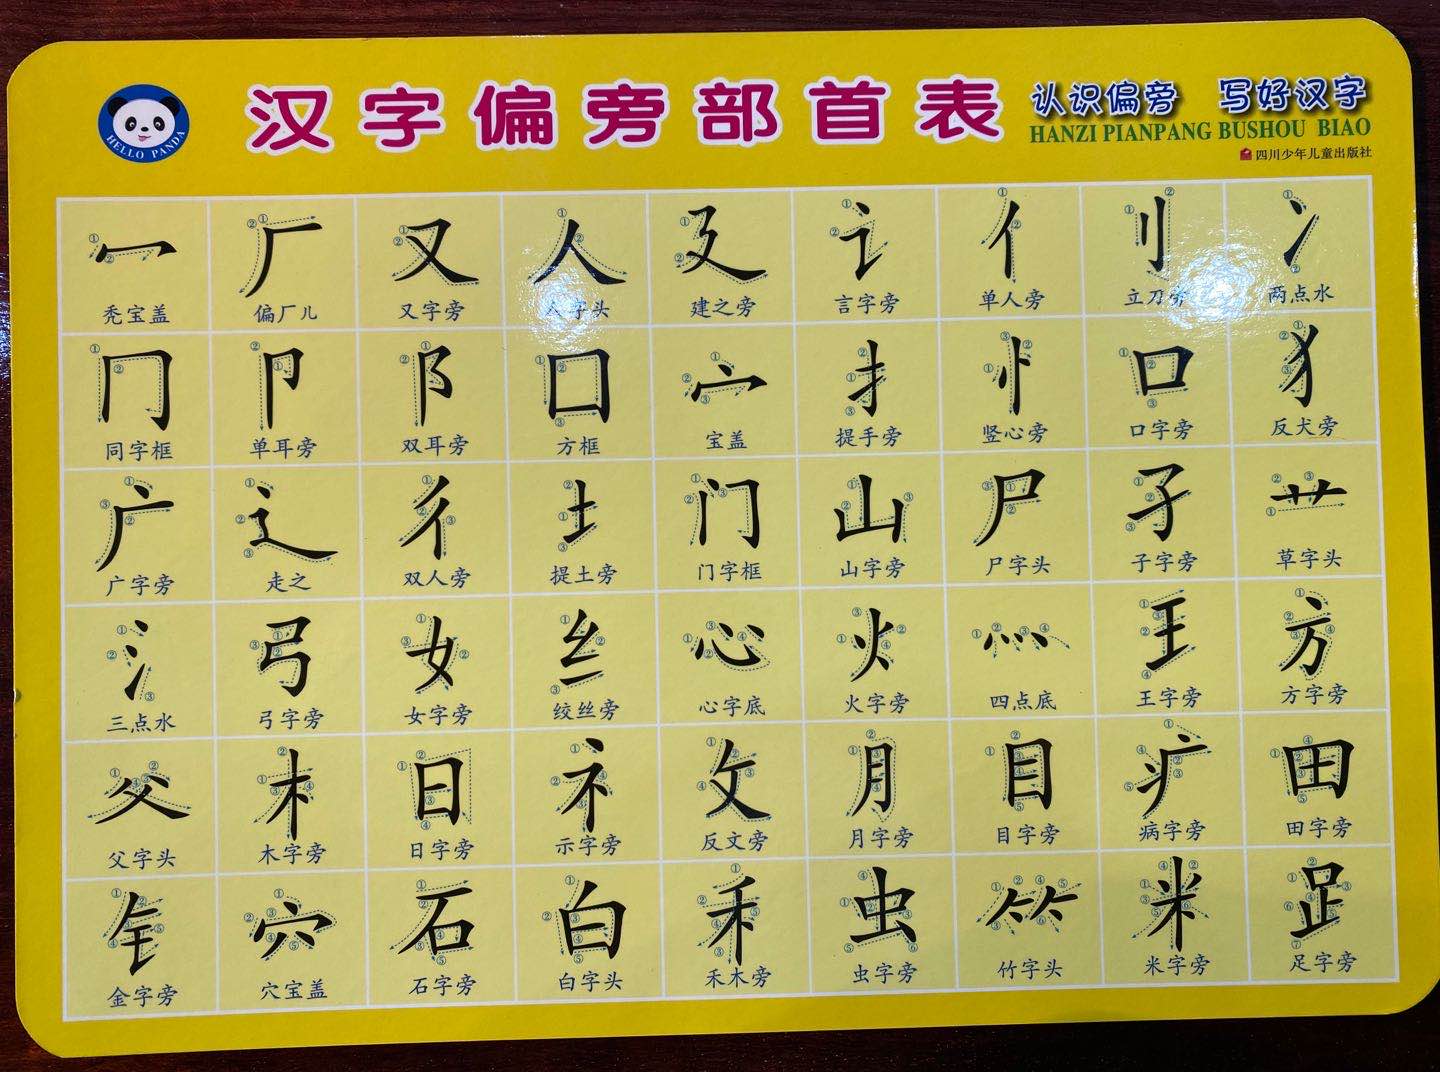 HELLO PANDA
汉字偏旁部首表
认识偏旁 写好汉字
HANZI PIANPANG BUSHOU BIAO
四川少年儿童出版社
冖 厂 又 人 廴 讠 亻 刂 冫
秃宝盖 偏厂儿 又字旁 人字头 建之旁 言字旁 单人旁 立刀旁 两点水
冂 卩 阝 囗 宀 扌 忄 口 犭
同字框 单耳旁 双耳旁 方框 宝盖 提手旁 竖心旁 口字旁 反犬旁
广 辶 彳 土 门 山 尸 子 艹
广字旁 走之 双人旁 提土旁 门字框 山字旁 尸字头 子字旁 草字头
氵 弓 女 纟 心 火 灬 王 方
三点水 弓字旁 女字旁 绞丝旁 心字底 火字旁 四点底 王字旁 方字旁
父 木 日 礻 攵 月 目 疒 田
父字头 木字旁 日字旁 示字旁 反文旁 月字旁 目字旁 病字旁 田字旁
钅 穴 石 白 禾 虫 ⺮ 米 𧾷
金字旁 穴宝盖 石字旁 白字头 禾木旁 虫字旁 竹字头 米字旁 足字旁